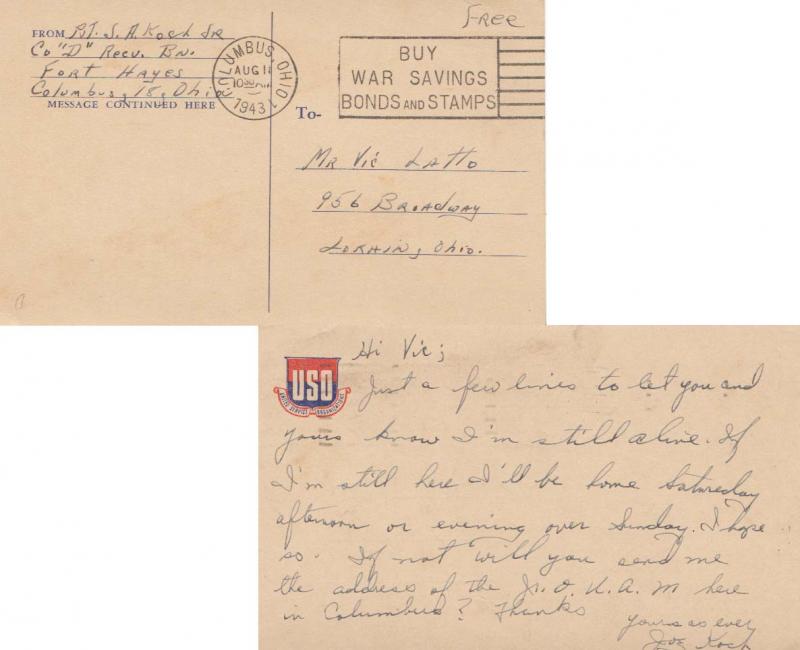 Free
FROM Pvt. J. A. Koch Jr
Co "D" Recv. Bn.
Fort Hayes
Columbus, 18, Ohio
MESSAGE CONTINUED HERE
COLUMBUS, OHIO 1
AUG 11
1943
BUY
WAR SAVINGS
BONDS AND STAMPS
To-
Mr Vic Latto
956 Broadway
Lorain, Ohio.
USO
UNITED SERVICE ORGANIZATIONS
Hi Vic;
Just a few lines to let you and
yours know I'm still alive. If
I'm still here I'll be home Saturday
afternoon or evening over Sunday. I hope
so. If not will you send me
the address of the Jr. O. U. A. M here
in Columbus? Thanks
Yours as ever
Joe Koch